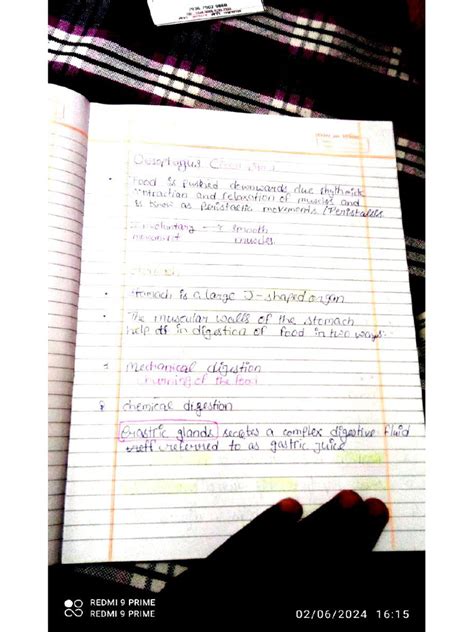 Oesophagus
Food is pushed downwards due rhythmic
contraction and relaxation of muscles and
is know as peristaltic movements / Peristalsis
involuntary → smooth
movement muscles
Stomach is a large J-shaped organ
The muscular walls of the stomach
help in digestion of food in two ways:-
Mechanical digestion
churning of the food
chemical digestion
Gastric glands secretes a complex digestive fluid
referred to as gastric juice
REDMI 9 PRIME
REDMI 9 PRIME
02/06/2024 16:15